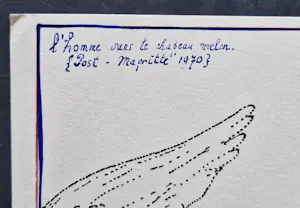 l'Homme sans le chapeau melon.
{Post - Magritte" 1970}